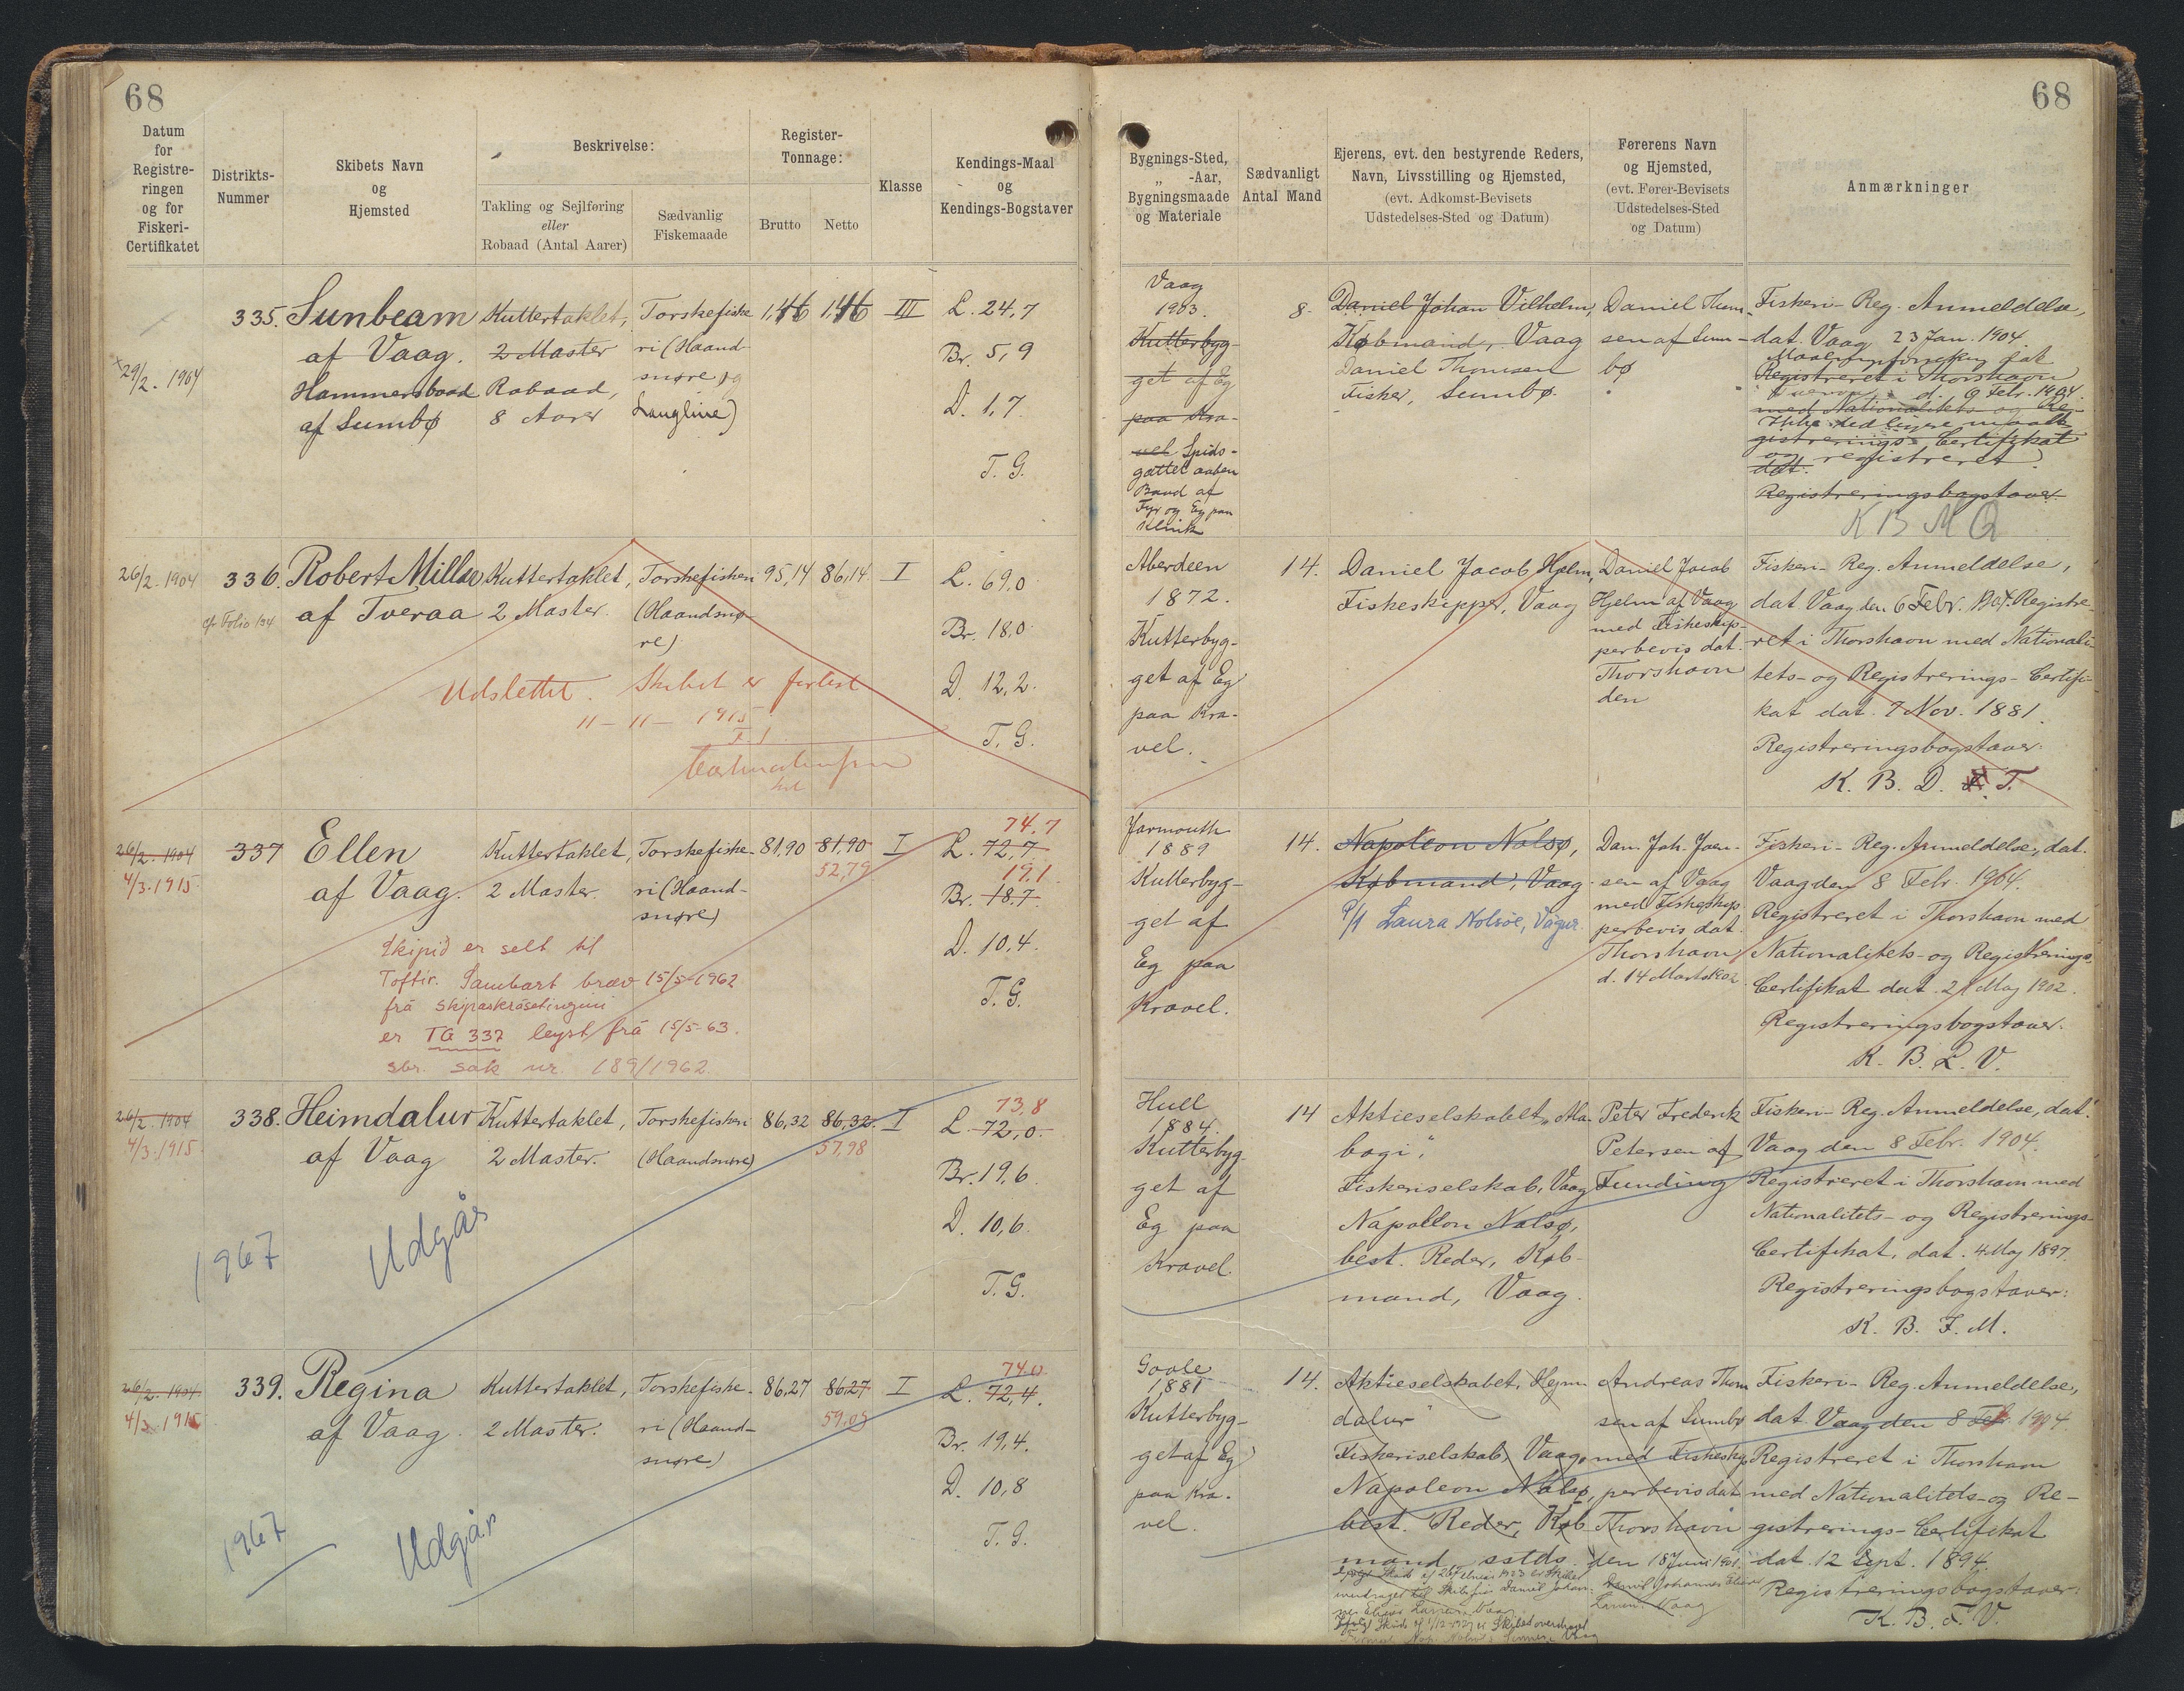 68
68
Datum
for
Registre-
ringen
og for
Fiskeri-
Certifikatet
Distrikts-
Nummer
Skibets Navn
og
Hjemsted
Beskrivelse:
Takling og Sejlføring
eller
Robaad (Antal Aarer)
Sædvanlig
Fiskemaade
Register-
Tonnage:
Brutto
Netto
Klasse
Kendings-Maal
og
Kendings-Bogstaver
Bygnings-Sted,
„ -Aar,
Bygningsmaade
og Materiale
Sædvanligt
Antal Mand
Ejerens, evt. den bestyrende Reders,
Navn, Livsstilling og Hjemsted,
(evt. Adkomst-Bevisets
Udstedelses-Sted og Datum)
Førerens Navn
og Hjemsted,
(evt. Fører-Bevisets
Udstedelses-Sted
og Datum)
Anmærkninger
29/2. 1904
335.
Sunbeam
af Vaag.
Hammersbaad
af Sumbø
Kuttertaklet,
2 Master
Robaad,
8 Aarer
Torskefiske
ri (Haand-
snøre og
Langline)
III
L. 24,7
Br. 5,9
D. 1,7.
T. G.
Vaag
1903.
Kutterbyg-
get af Eg
paa Kra-
vel Spids-
gattet aaben
Baad af
Fyr og Eg paa
Klink
8.
Daniel Johan Vilhelm,
Købmand, Vaag
Daniel Thomsen
Fisker, Sumbø.
Daniel Thom-
sen af Sum-
bø
Fiskeri-Reg. Anmeldelse,
dat. Vaag 23 Jan. 1904.
Registreret i Thorshavn
d. 9 Febr. 1904.
med Nationalitets- og Re-
gistrerings-Certifikat
og registreret.
dat.
Registreringsbogstaver.
K B M Q
26/2. 1904
cfr Folio 134
336.
Robert Miller
af Tveraa
Kuttertaklet,
2 Master.
Torskefiskeri
(Haandsnø-
re)
95,14
86,14
I
L. 69,0
Br. 18,0
D. 12,2.
T. G.
Udslettet. Skibet er forlist
11-11-1915
Aberdeen
1872.
Kutterbyg-
get af Eg
paa Kra-
vel.
14.
Daniel Jacob Hjelm,
Fiskeskipper, Vaag
Daniel Jacob
Hjelm af Vaag
med Fiskeskip-
perbevis dat.
Thorshavn
den
Fiskeri-Reg. Anmeldelse,
dat. Vaag den 6 Febr. 1904. Registre-
ret i Thorshavn med Nationali-
tets- og Registrerings-Certifi-
kat dat. 7 Nov. 1881.
Registreringsbogstaver:
K. B. D. T.
26/2. 1904
4/3. 1915.
337
Ellen
af Vaag.
Kuttertaklet,
2 Master.
Torskefiske-
ri (Haand-
snøre)
81,90
81,90
52,79
I
74.7
L. 72,7.
19.1
Br. 18.7.
D. 10,4.
T. G.
Skipið er selt til
Toftir. Sambart bræv 15/5-1962
frá skipaskrásetingini
er TG 337 leyst frá 15/5-63.
sbr. sak nr. 189/1962
Jarmouth
1889
Kutterbyg-
get af
Eg paa
Kravel.
14.
Napoleon Nolsø,
Købmand, Vaag
P/f Laura Nolsøe, Vágur.
Dan. Joh. Joen-
sen af Vaag
med Fiskeskip-
perbevis dat.
Thorshavn
d. 14 Marts 1902.
Fiskeri-Reg. Anmeldelse, dat.
Vaag den 8 Febr. 1904.
Registreret i Thorshavn med
Nationalitets- og Registrerings-
Certifikat dat. 21 Maj 1902.
Registreringsbogstaver.
K. B. L. V.
26/2. 1904
4/3. 1915
338.
Heimdalur
af Vaag
Kuttertaklet,
2 Master.
Torskefiskeri
(Haandsnøre)
86,32
86,32.
57,98
I
73,8
L. 72,0.
Br. 19,6.
D. 10,6.
T. G.
1967
Udgår
Hull
1884.
Kutterbyg-
get af
Eg paa
Kravel.
14
Aktieselskabet „Ma-
bogi“,
Fiskeriselskab, Vaag
Napoleon Nolsø,
best. Reder, Køb-
mand, Vaag.
Peter Frederik
Petersen af
Funding
Fiskeri-Reg. Anmeldelse, dat.
Vaag den 8 Febr. 1904.
Registreret i Thorshavn med
Nationalitets- og Registrerings-
Certifikat, dat. 4 Maj 1897.
Registreringsbogstaver:
K. B. F. M.
26/2. 1904
4/3 1915
339.
Regina
af Vaag.
Kuttertaklet,
2 Master.
Torskefiske-
ri (Haand-
snøre)
86,27
86,27
59.05
I
74.0
L. 72,4.
Br. 19,4.
D. 10,8
T. G.
1967
Udgår
Goole
1881
Kutterbyg-
get af Eg
paa Kra-
vel.
14.
Aktieselskabet, Hejm-
dalur“
Fiskeriselskab, Vaag,
Napoleon Nolsø,
best. Reder, Køb-
mand, sstds.
Andreas Thom-
sen af Sumbø
med Fiskeskip-
perbevis dat.
Thorshavn
den 18 Juni 1901.
Daniel Johannes
Vaag
Fiskeri-Reg. Anmeldelse,
dat. Vaag den 8 Febr. 1904.
Registreret i Thorshavn
med Nationalitets- og Re-
gistrerings-Certifikat
dat. 12 Sept. 1894.
Registreringsbogstaver:
K. B. F. V.